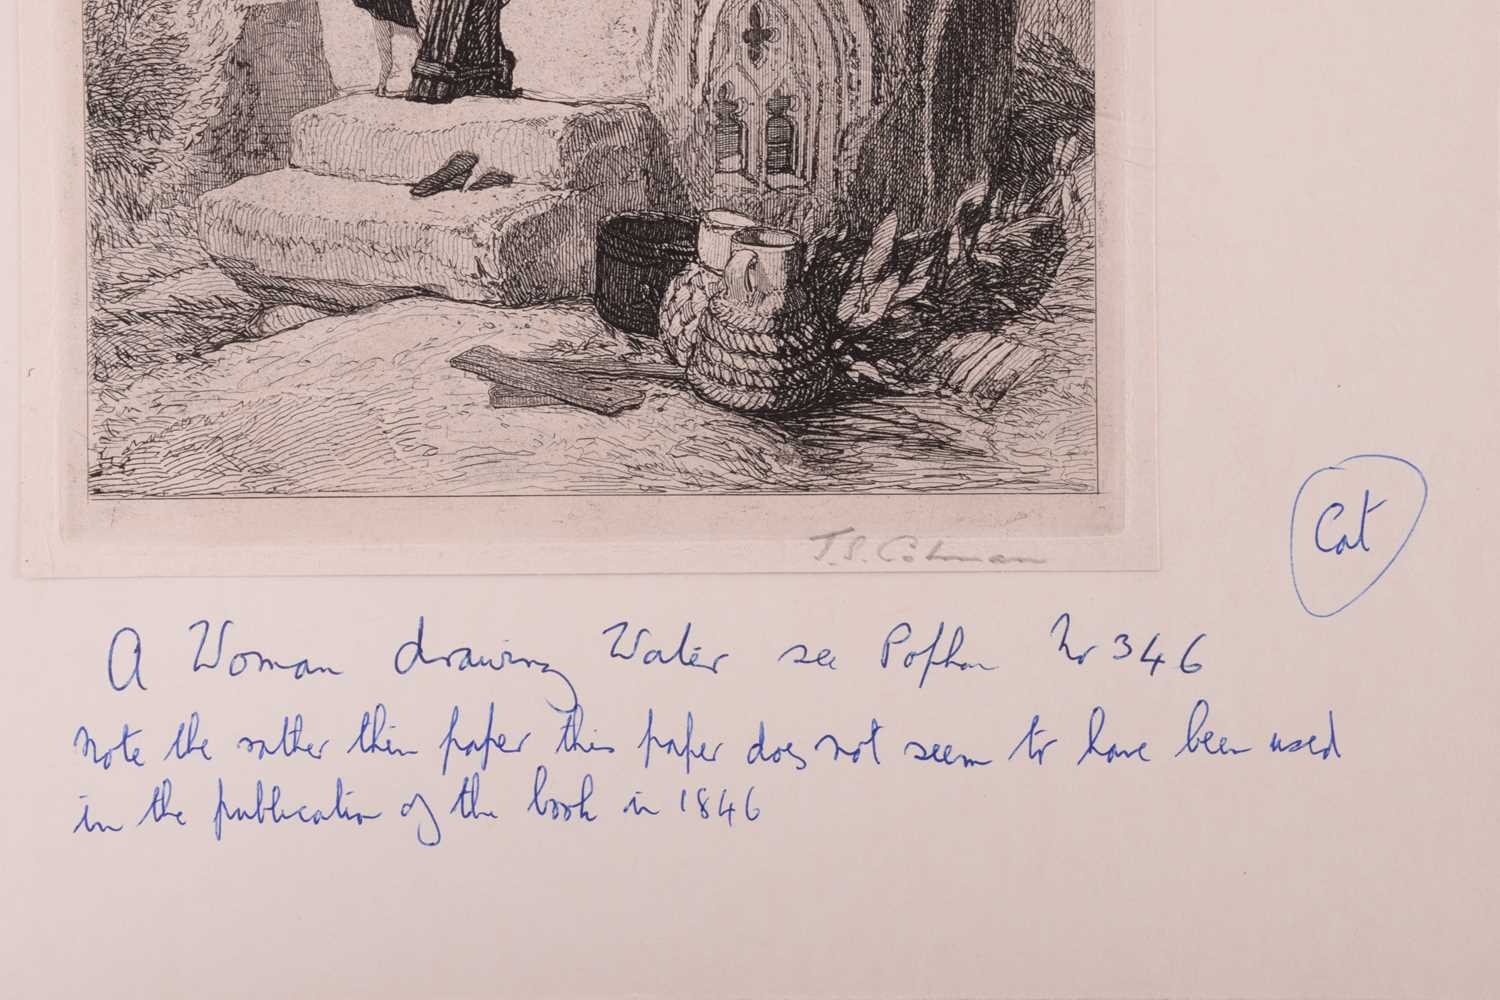 J.S. Cotman
Cat
A Woman drawing Water see Popham Nr 346
Note the rather thin paper this paper does not seem to have been used
in the publication of the book in 1846